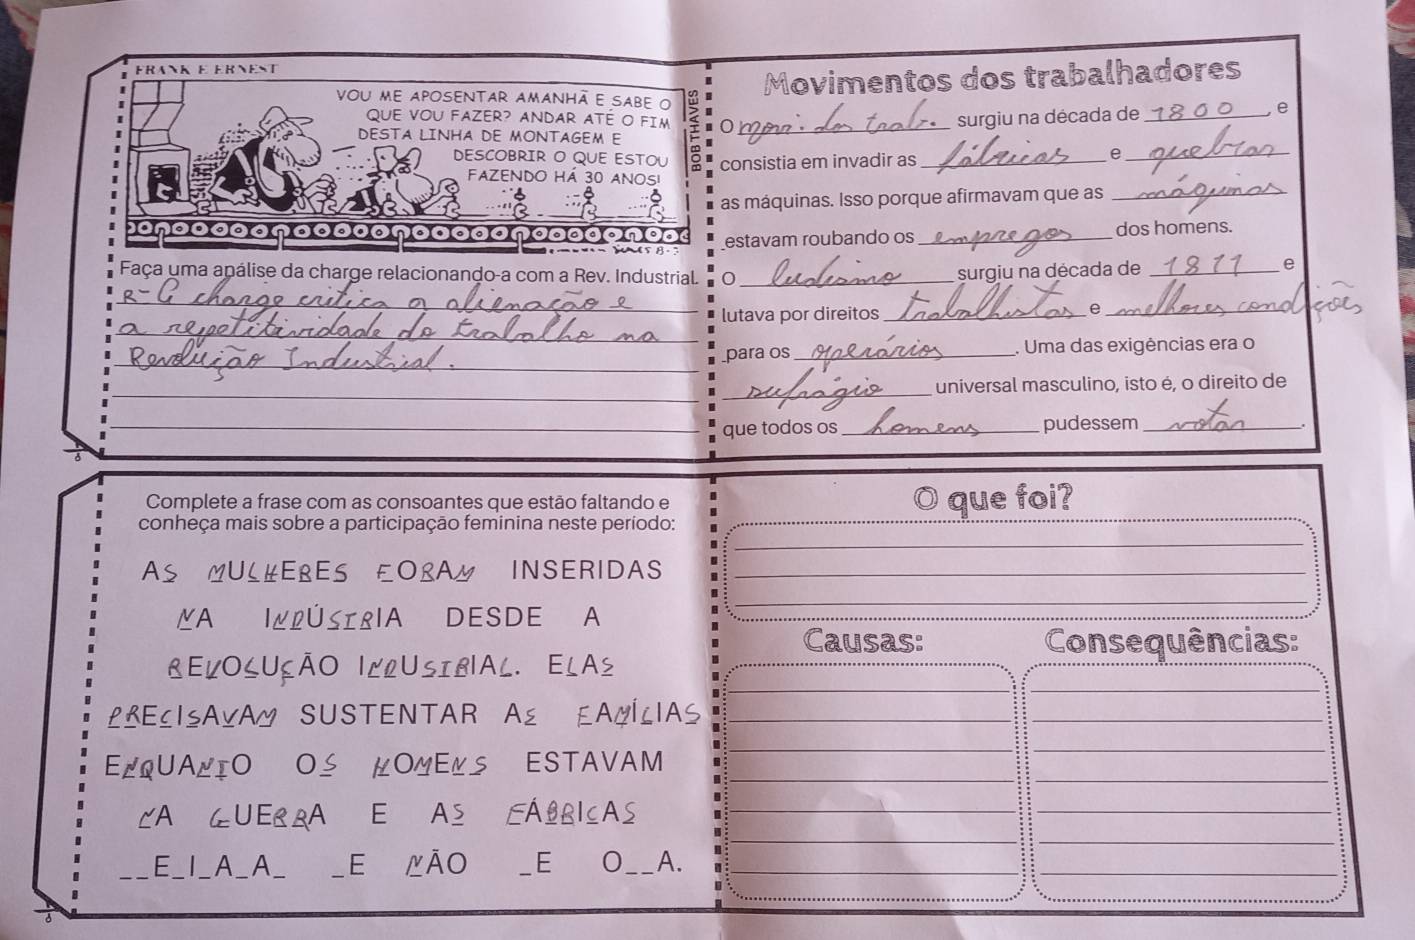 FRANK E ERNEST
VOU ME APOSENTAR AMANHÃ E SABE O
QUE VOU FAZER? ANDAR ATÉ O FIM
DESTA LINHA DE MONTAGEM E
DESCOBRIR O QUE ESTOU
FAZENDO HÁ 30 ANOS!
BOB THAVES
Faça uma análise da charge relacionando-a com a Rev. Industrial.
R- A charge critica a alienação e
a repetitividade do trabalho na
Revolução Industrial.
Movimentos dos trabalhadores
O movi. dos trab. surgiu na década de 1800, e
consistia em invadir as fábricas e quebrar
as máquinas. Isso porque afirmavam que as máquinas
estavam roubando os empregos dos homens.
O ludismo surgiu na década de 1811 e
lutava por direitos trabalhistas e melhores condições
para os operários. Uma das exigências era o
sufrágio universal masculino, isto é, o direito de
que todos os homens pudessem votar.
Complete a frase com as consoantes que estão faltando e
conheça mais sobre a participação feminina neste período:
AS MULHERES FORAM INSERIDAS
NA INDÚSTRIA DESDE A
REVOLUÇÃO INDUSTRIAL. ELAS
PRECISAVAM SUSTENTAR AS FAMÍLIAS
ENQUANTO OS HOMENS ESTAVAM
NA GUERRA E AS FÁBRICAS
__E_I_A_A_ _E NÃO _E O__A.
O que foi?
Causas: Consequências: